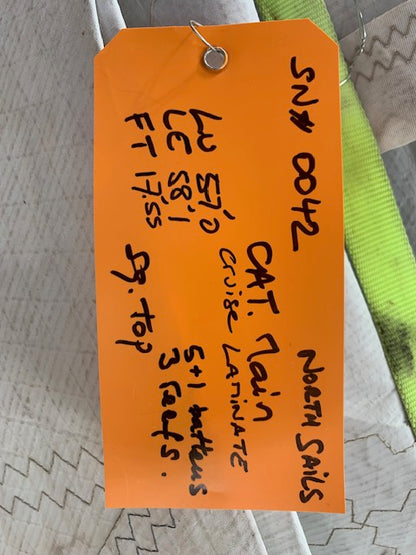 SN# 0042 NORTH SAILS
CAT. Main
Cruise LAMINATE
LU 57'0
LE 58'1
FT 17'.55
5+1 battens
3 reefs.
Sq. Top